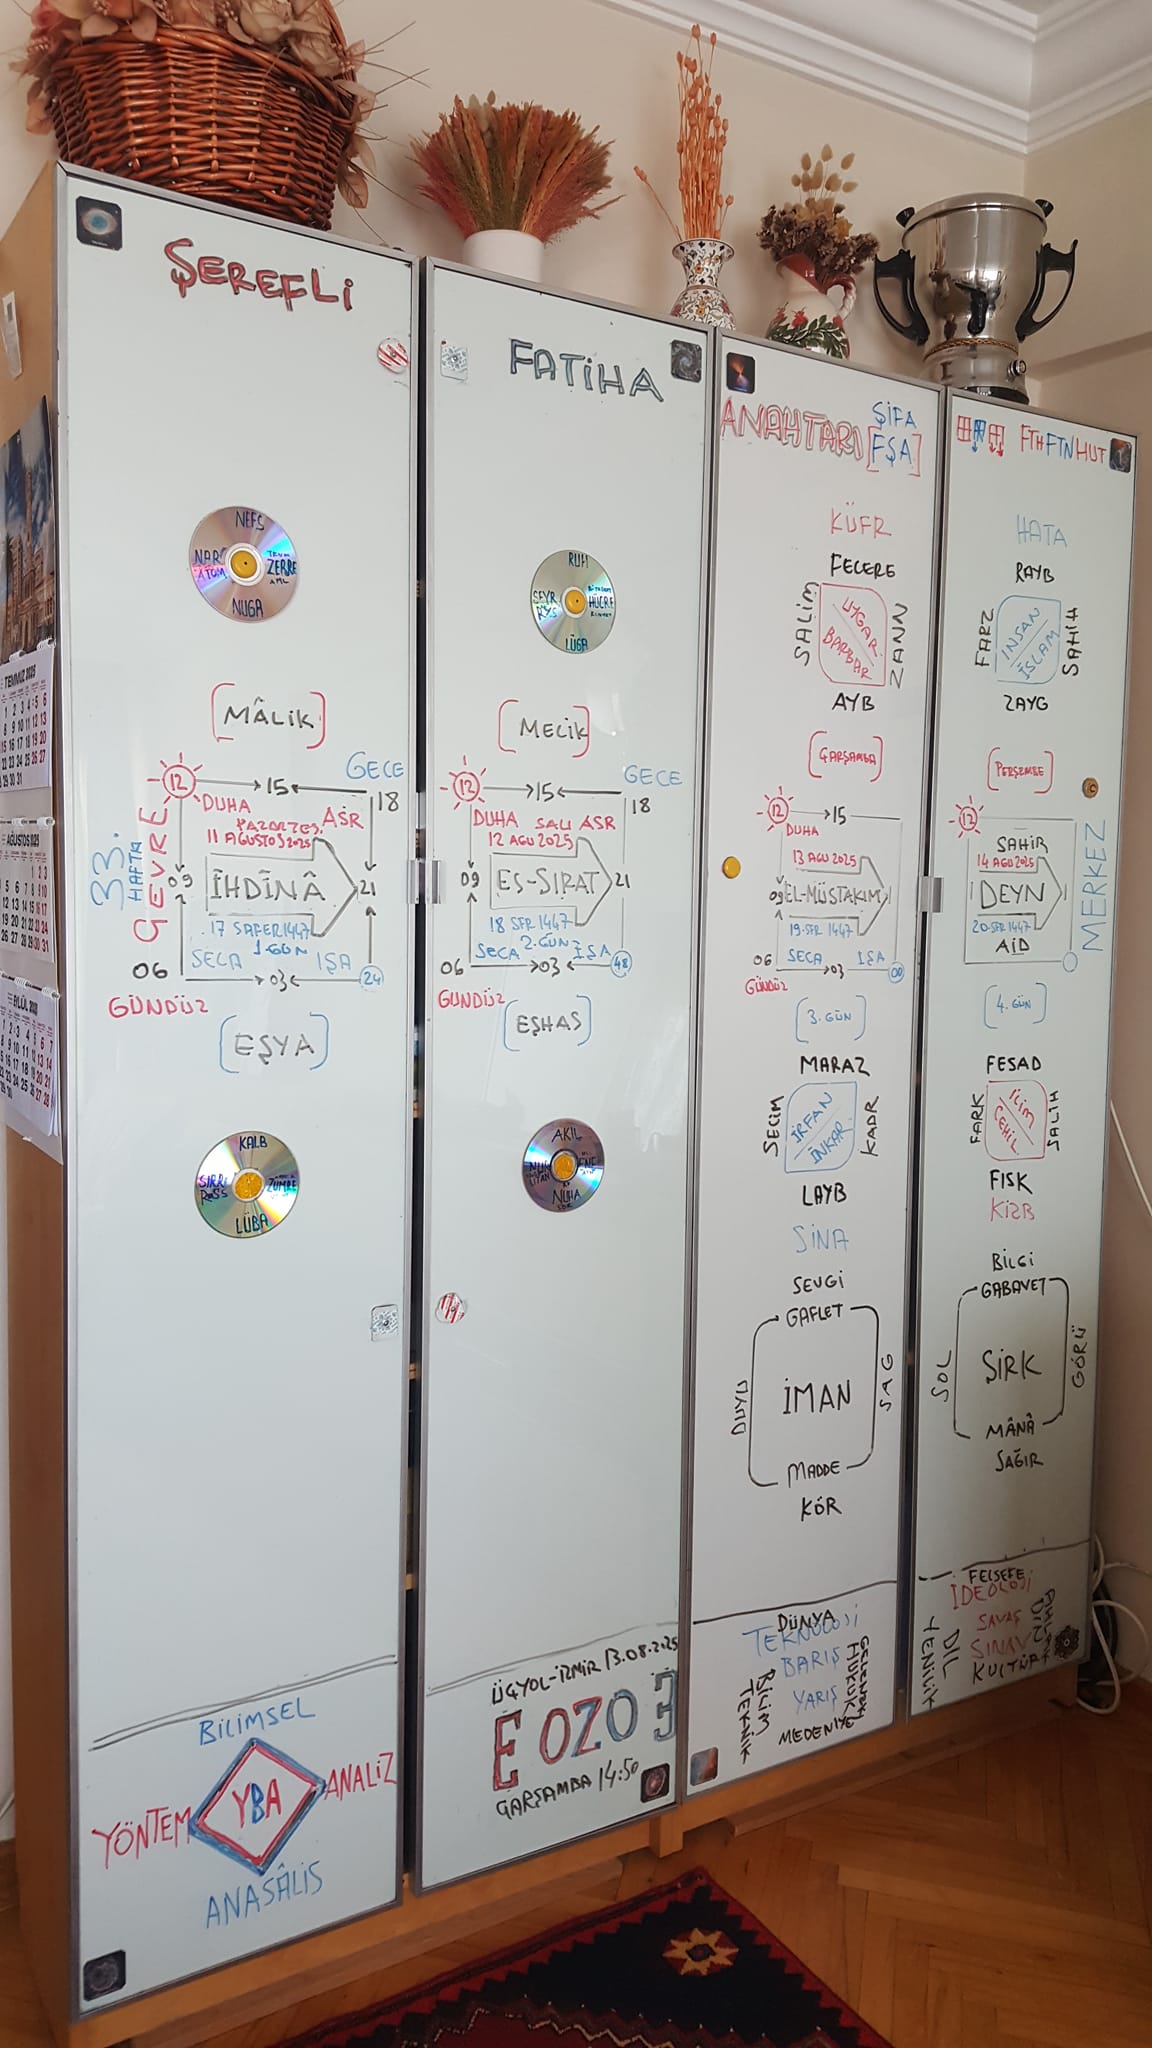 ŞEREFLİ
NEFS
NAR
ATOM
ZERRE
NUGA
[MÂLİK]
12
15
GECE
18
DUHA
PAZARTES.
11 AGUSTOS 2025
ASR
33.
HAFTA
ÇEVRE
09
İHDİNÂ
21
17 SAFER 1447
1.GÜN
SECA
IŞA
06
03
24
GÜNDÜZ
[EŞYA]
KALB
SIRR
ZÜMRE
LÜBA
BİLİMSEL
YÖNTEM
YBA
ANALİZ
ANASÂLİS
FATİHA
RUH
SEYR
HÜCRE
LÜGA
[MELİK]
12
15
GECE
18
DUHA
SALI
ASR
12 AGU 2025
09
ES-SIRAT
21
18 SFR 1447
SECA
2.GÜN
IŞA
06
03
48
GÜNDÜZ
[EŞHAS]
AKIL
NUHA
ÜÇYOL-İZMİR 13.08.2025
E OZO 3
ÇARŞAMBA 14:50
ANAHTARI
ŞİFA
[FŞA]
KÜFR
FECERE
SALİM
UYGAR
BARBAR
ZANN
AYB
[ÇARŞAMBA]
12
15
DUHA
13 AGU 2025
09
EL-MÜSTAKIM
19 SFR 1447
SECA
IŞA
06
03
00
GÜNDÜZ
[3. GÜN]
MARAZ
SECİM
İRFAN
İNKAR
KADR
LAYB
SİNA
SEVGİ
GAFLET
DUYU
İMAN
SAG
MADDE
KÖR
DÜNYA
TEKNOLOJİ
BARIŞ
YARIŞ
BİLİM
TEKNİK
HUKUK
MEDENİYE
FTHFTNHUT
HATA
RAYB
FARZ
INSAN
İSLAM
SAHİH
ZAYG
[PERŞEMBE]
12
SAHİR
14 AGU 2025
DEYN
20 SFR 1447
AİD
MERKEZ
[4. GÜN]
FESAD
FARK
İLİM
CEHİL
SALİH
FISK
KİZB
BİLGİ
GABAVET
SOL
ŞİRK
GÖRÜ
MÂNÂ
SAĞIR
FELSEFE
İDEOLOJİ
SAVAŞ
SINAV
KÜLTÜR
DİL
YENİLİK
DİN
AHLAK
TEMMUZ 2025
AĞUSTOS 2025
EYLÜL 2025